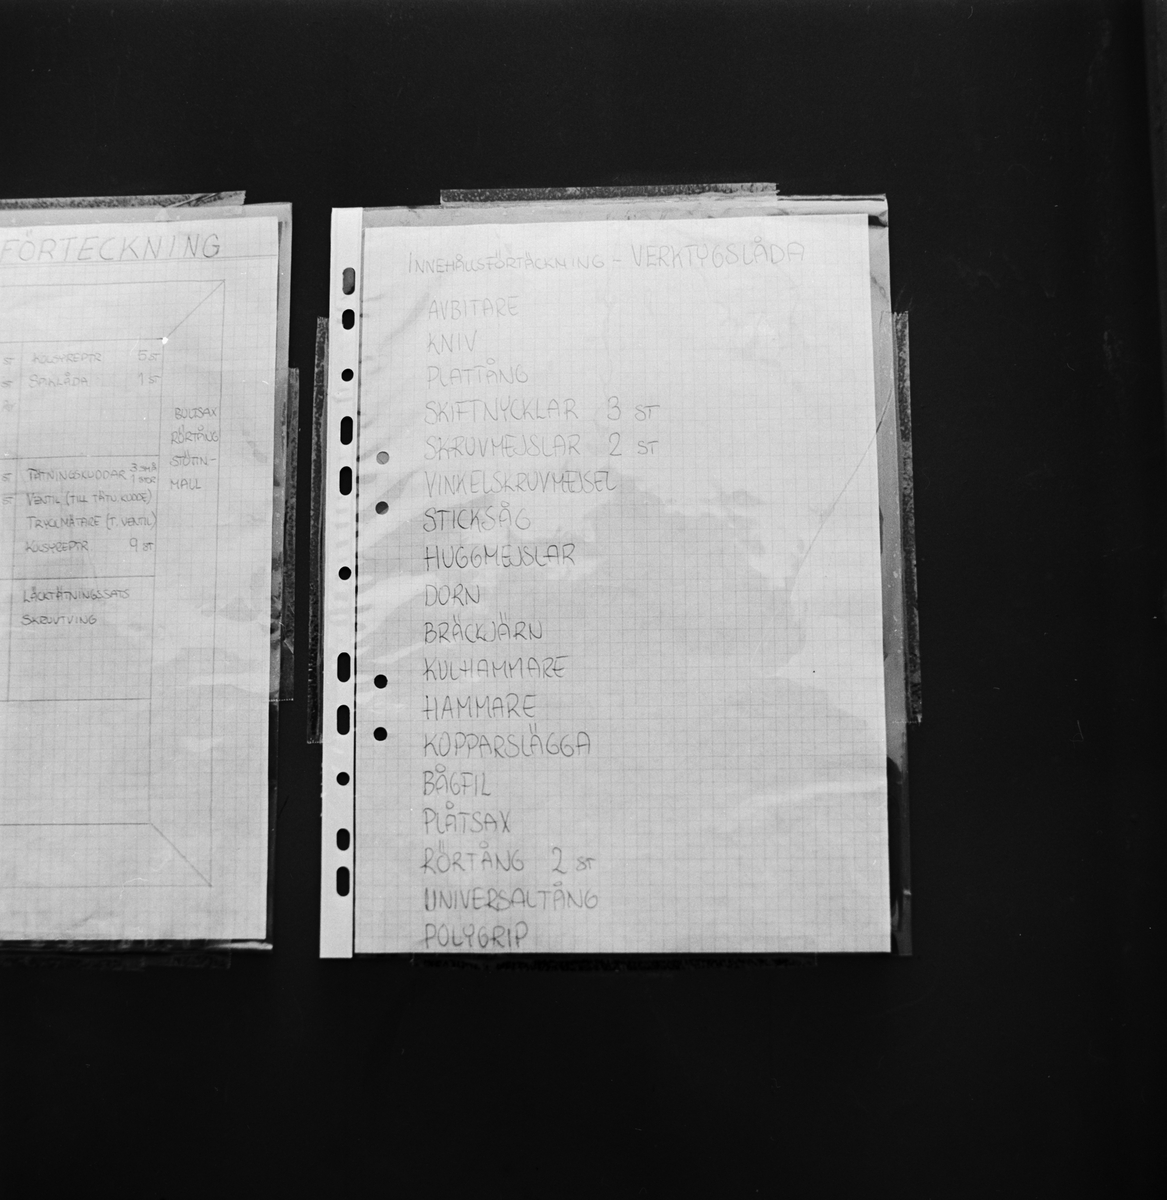 FÖRTECKNING
ST KOLSYREPTR 5 ST
ST SANLÅDA 1 ST
BULTSAX
RÖRTÅNG
STÖTTN-
MALL
ST TÄTNINGSKUDDAR 3 SMÅ
1 STOR
ST VENTIL (TILL TÄTN. KUDDE)
TRYCKMÄTARE (T. VENTIL)
KOLSYREPTR 9 ST
LÄCKTÄTNINGSSATS
SKRUVTVING
INNEHÅLLSFÖRTÄCKNING - VERKTYGSLÅDA
AVBITARE
KNIV
PLATTÅNG
SKIFTNYCKLAR 3 ST
SKRUVMEJSLAR 2 ST
VINKELSKRUVMEJSEL
STICKSÅG
HUGGMEJSLAR
DORN
BRÄCKJÄRN
KULHAMMARE
HAMMARE
KOPPARSLÄGGA
BÅGFIL
PLÅTSAX
RÖRTÅNG 2 ST
UNIVERSALTÅNG
POLYGRIP